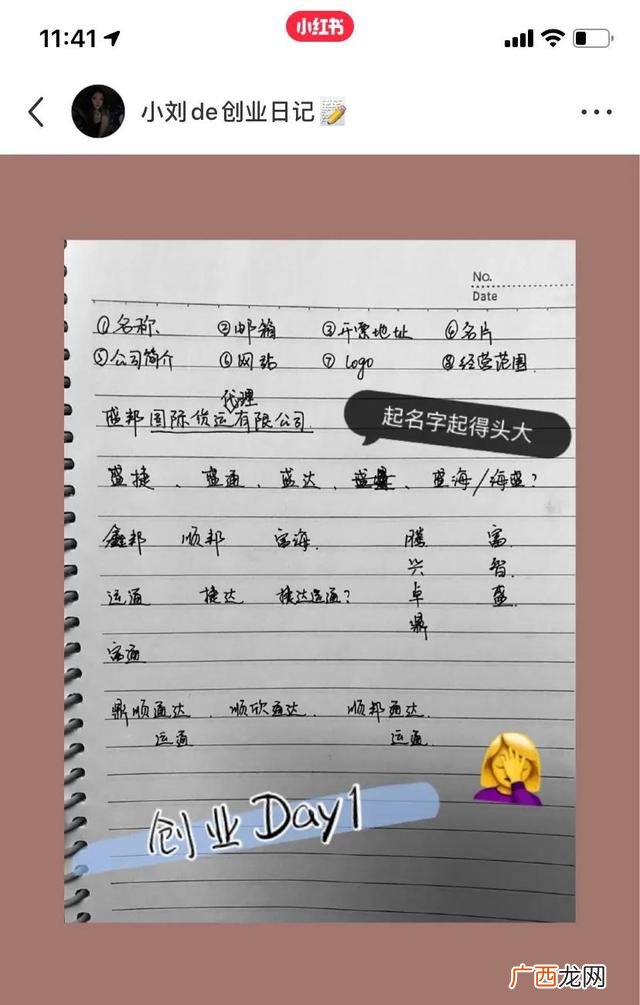 11:41
小红书
小刘de创业日记
No.
Date
①名称 ②邮箱 ③开票地址 ④名片
⑤公司简介 ⑥网站 ⑦logo ⑧经营范围
代理
盛邦国际货运有限公司
起名字起得头大
盛捷、盛通、盛达、 盛海/海盛?
鑫邦 顺邦 富海 腾 富
兴 智
运通 捷达 捷达运通? 卓 盛
鼎
富通
鼎顺通达、顺欣通达、顺邦通达
运通 运通
创业Day1
广西龙网